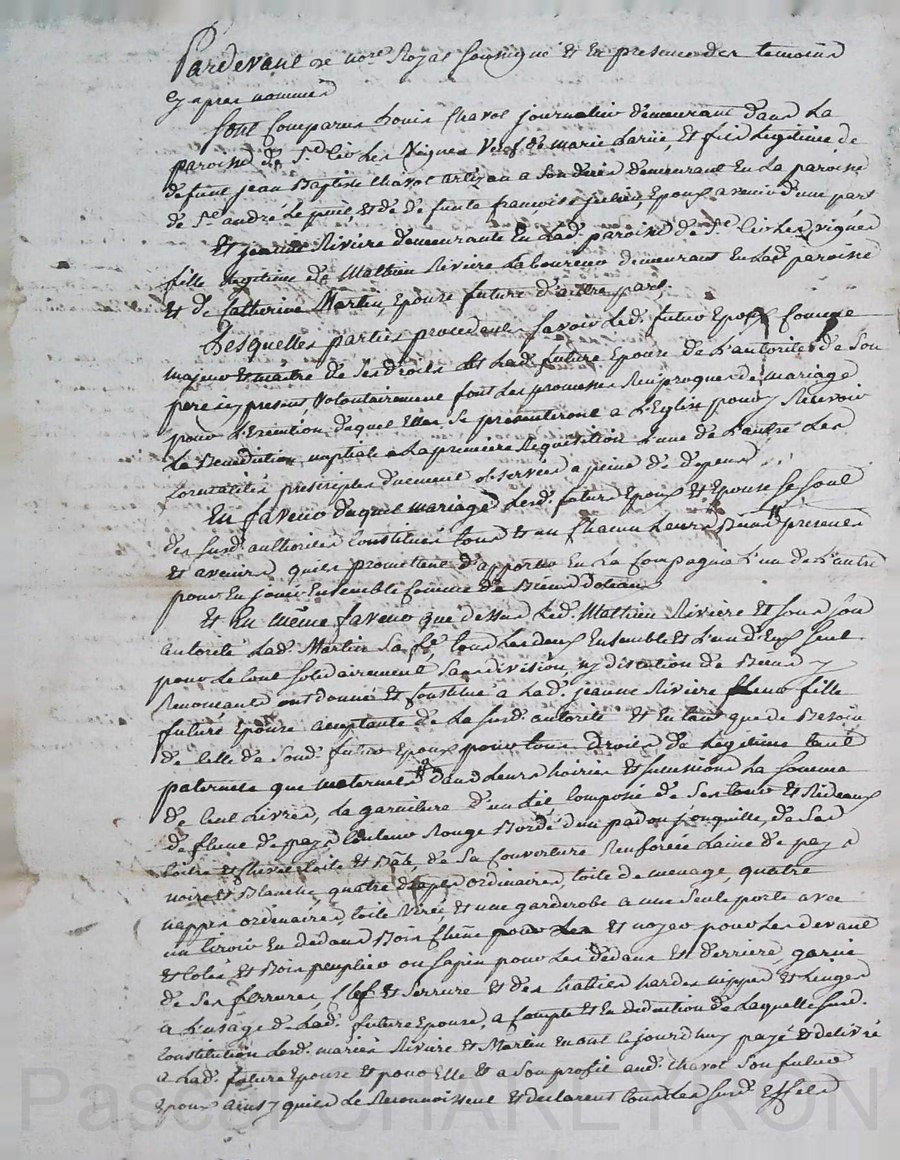 Pardevant le no.re Royal soussigné et en presence des temoins
cy apres nommés
Sont comparus Louis Chavot journalier demeurant dans la
paroisse de St Les Vignes veuf de marie et fils legitime de
defunt jean Baptiste Chavot artizan a son decés demeurant en la paroisse
de St. andré Le puis, et de defunte françoise Epoux a venir d'une part
Et jeanne Riviere demeurante en lad. paroisse de St. Les Vignes
fille legitime de Mathieu Riviere Laboureur demeurant en lad. paroisse
et de Catherine Martin, Epouse future d'autre part,
Lesquelles parties procedant savoir led. futur Epoux comme
majeur et maitre de ses droits et lad. future Epouse de L'autorité de son
pere icy present, volontairement font les promesses Reciproques de mariage
pour L'Execution duquel Elles se presenteront a L'Eglise pour y Recevoir
La Benediction nuptiale a La premiere Requisition L'une de L'autre Les
formalités prescriptes duement observées a peine de depens
En faveur duquel mariage Lesd. futurs Epoux et Epouse se sont
des susd. authorités Constitués tous et un chacun Leurs Biens presents
et avenirs quils promettent d'apporter En La Compagnie L'un de L'autre
pour En jouir Ensemble Comme de Biens dotaux
Et En même faveur que dessus Led. Mathieu Riviere et sous son
autorité Lad. Martin sa fe. tous Les deux Ensemble et L'un d'Eux seul
pour le tout solidairement sans division ny discution de Biens y
Renonceants ont donné et Constitué a Lad. jeanne Riviere Leur fille
future Epouse acceptante de La susd. autorité et En tant que de Besoin
de Celle de sond. futur Epoux pour tous droits de Legitime tant
paternels que maternels dans Leurs hoiries et successions La somme
de Cent Livres, La garniture d'un Lit composé de ses tour et Rideaux
de de pays Couleur Rouge Bordé d'un padou jonquille, de sa
Coitre et Chevet toile et de sa Couverture Renforcée Laine de pays
noire et Blanche, quatre draps ordinaires, toile de menage, quatre
nappes ordinaires, toile et une garderobe a une seule porte avec
un tiroir En dedans Bois chêne pour Les et noyer pour Les devant
et Cotés et Bois peuplier ou sapin pour Les dedans et derriere, garnie
de ses ferrures Clef et serrure et des habits hardes nippes et Linges
a L'usage de Lad. future Epouse, a Compte et En deduction de Laquelle susd.
Constitution Lesd. mariés Riviere et Martin En ont cejourd'huy payé et delivré
a Lad. future Epouse et pour Elle et a son profit aud. Chavot son futur
Epoux ainsy quils Le Reconnoissent et declarent tous Les susd. Effets
Pascal CHARLEYRON